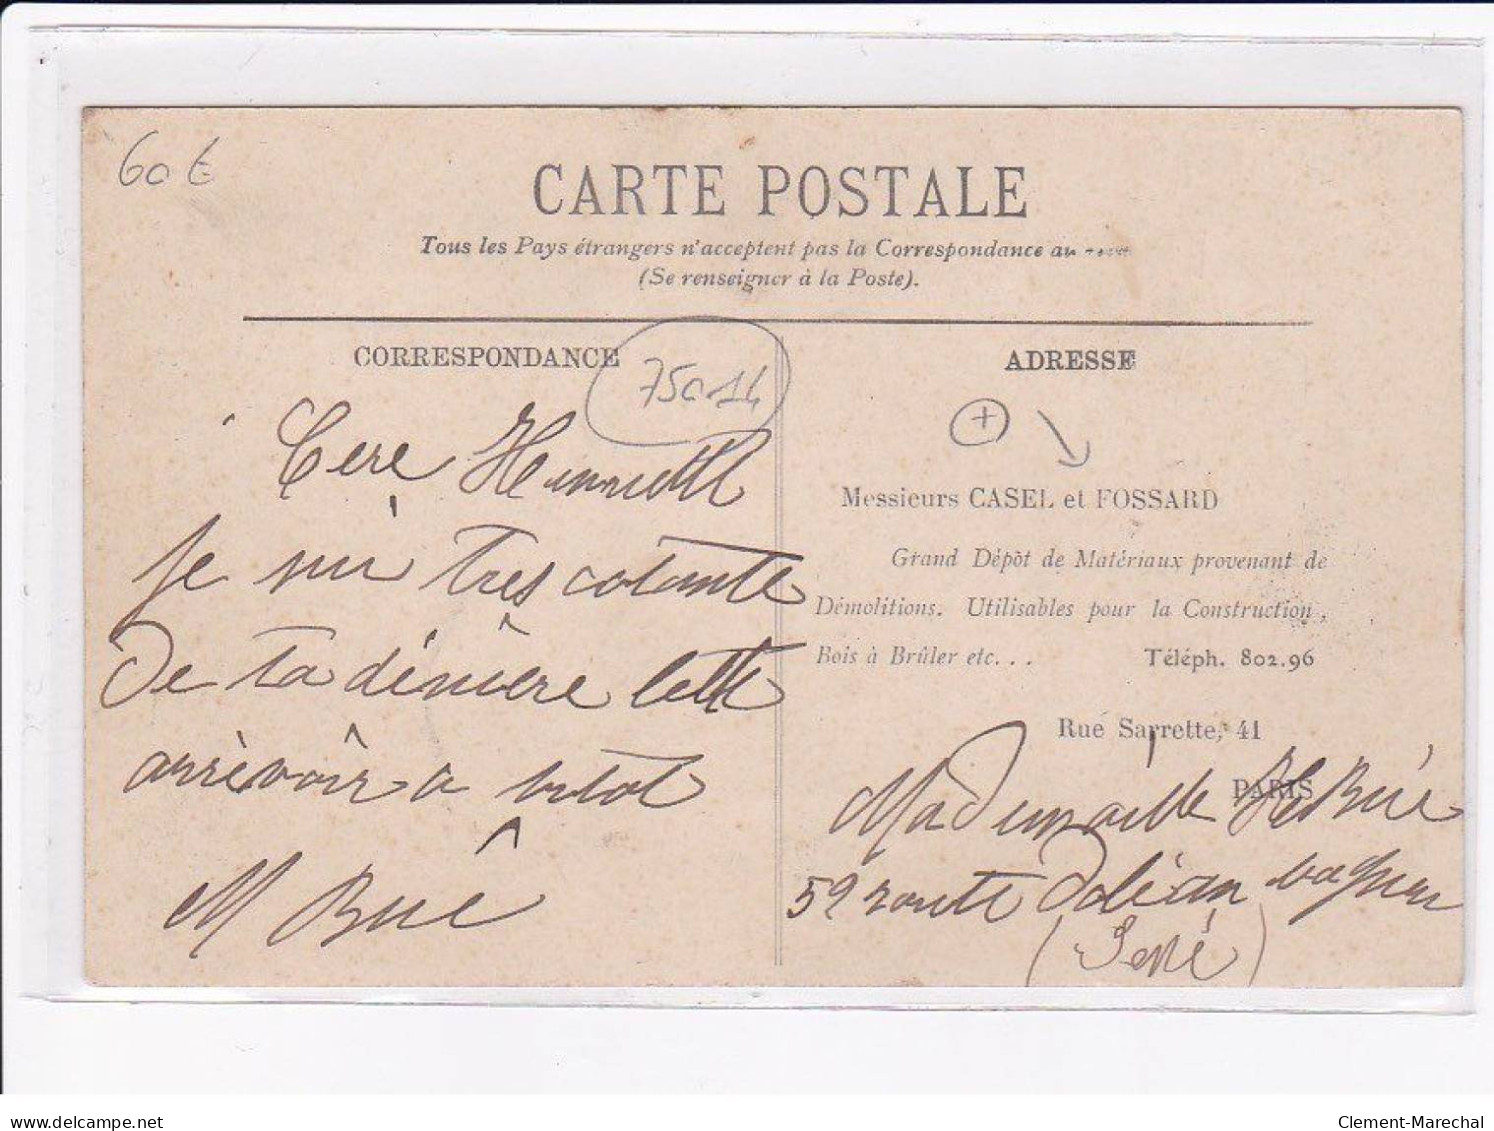 60 €
CARTE POSTALE
Tous les Pays étrangers n'acceptent pas la Correspondance au
(Se renseigner à la Poste).
CORRESPONDANCE
75014
Cere Henriette
Je sui très cotante
De ta dèniere lette
arrèvoir a bitot
M Bué
ADRESSE
+
Messieurs CASEL et FOSSARD
Grand Dépôt de Matériaux provenant de
Démolitions. Utilisables pour la Construction,
Bois à Brûler etc...
Téléph. 802.96
Rue Sarrette, 41
PARIS
Mademoiselle H Bué
59 route Doléan bagneu
www.delcampe.net
Clement-Marechal